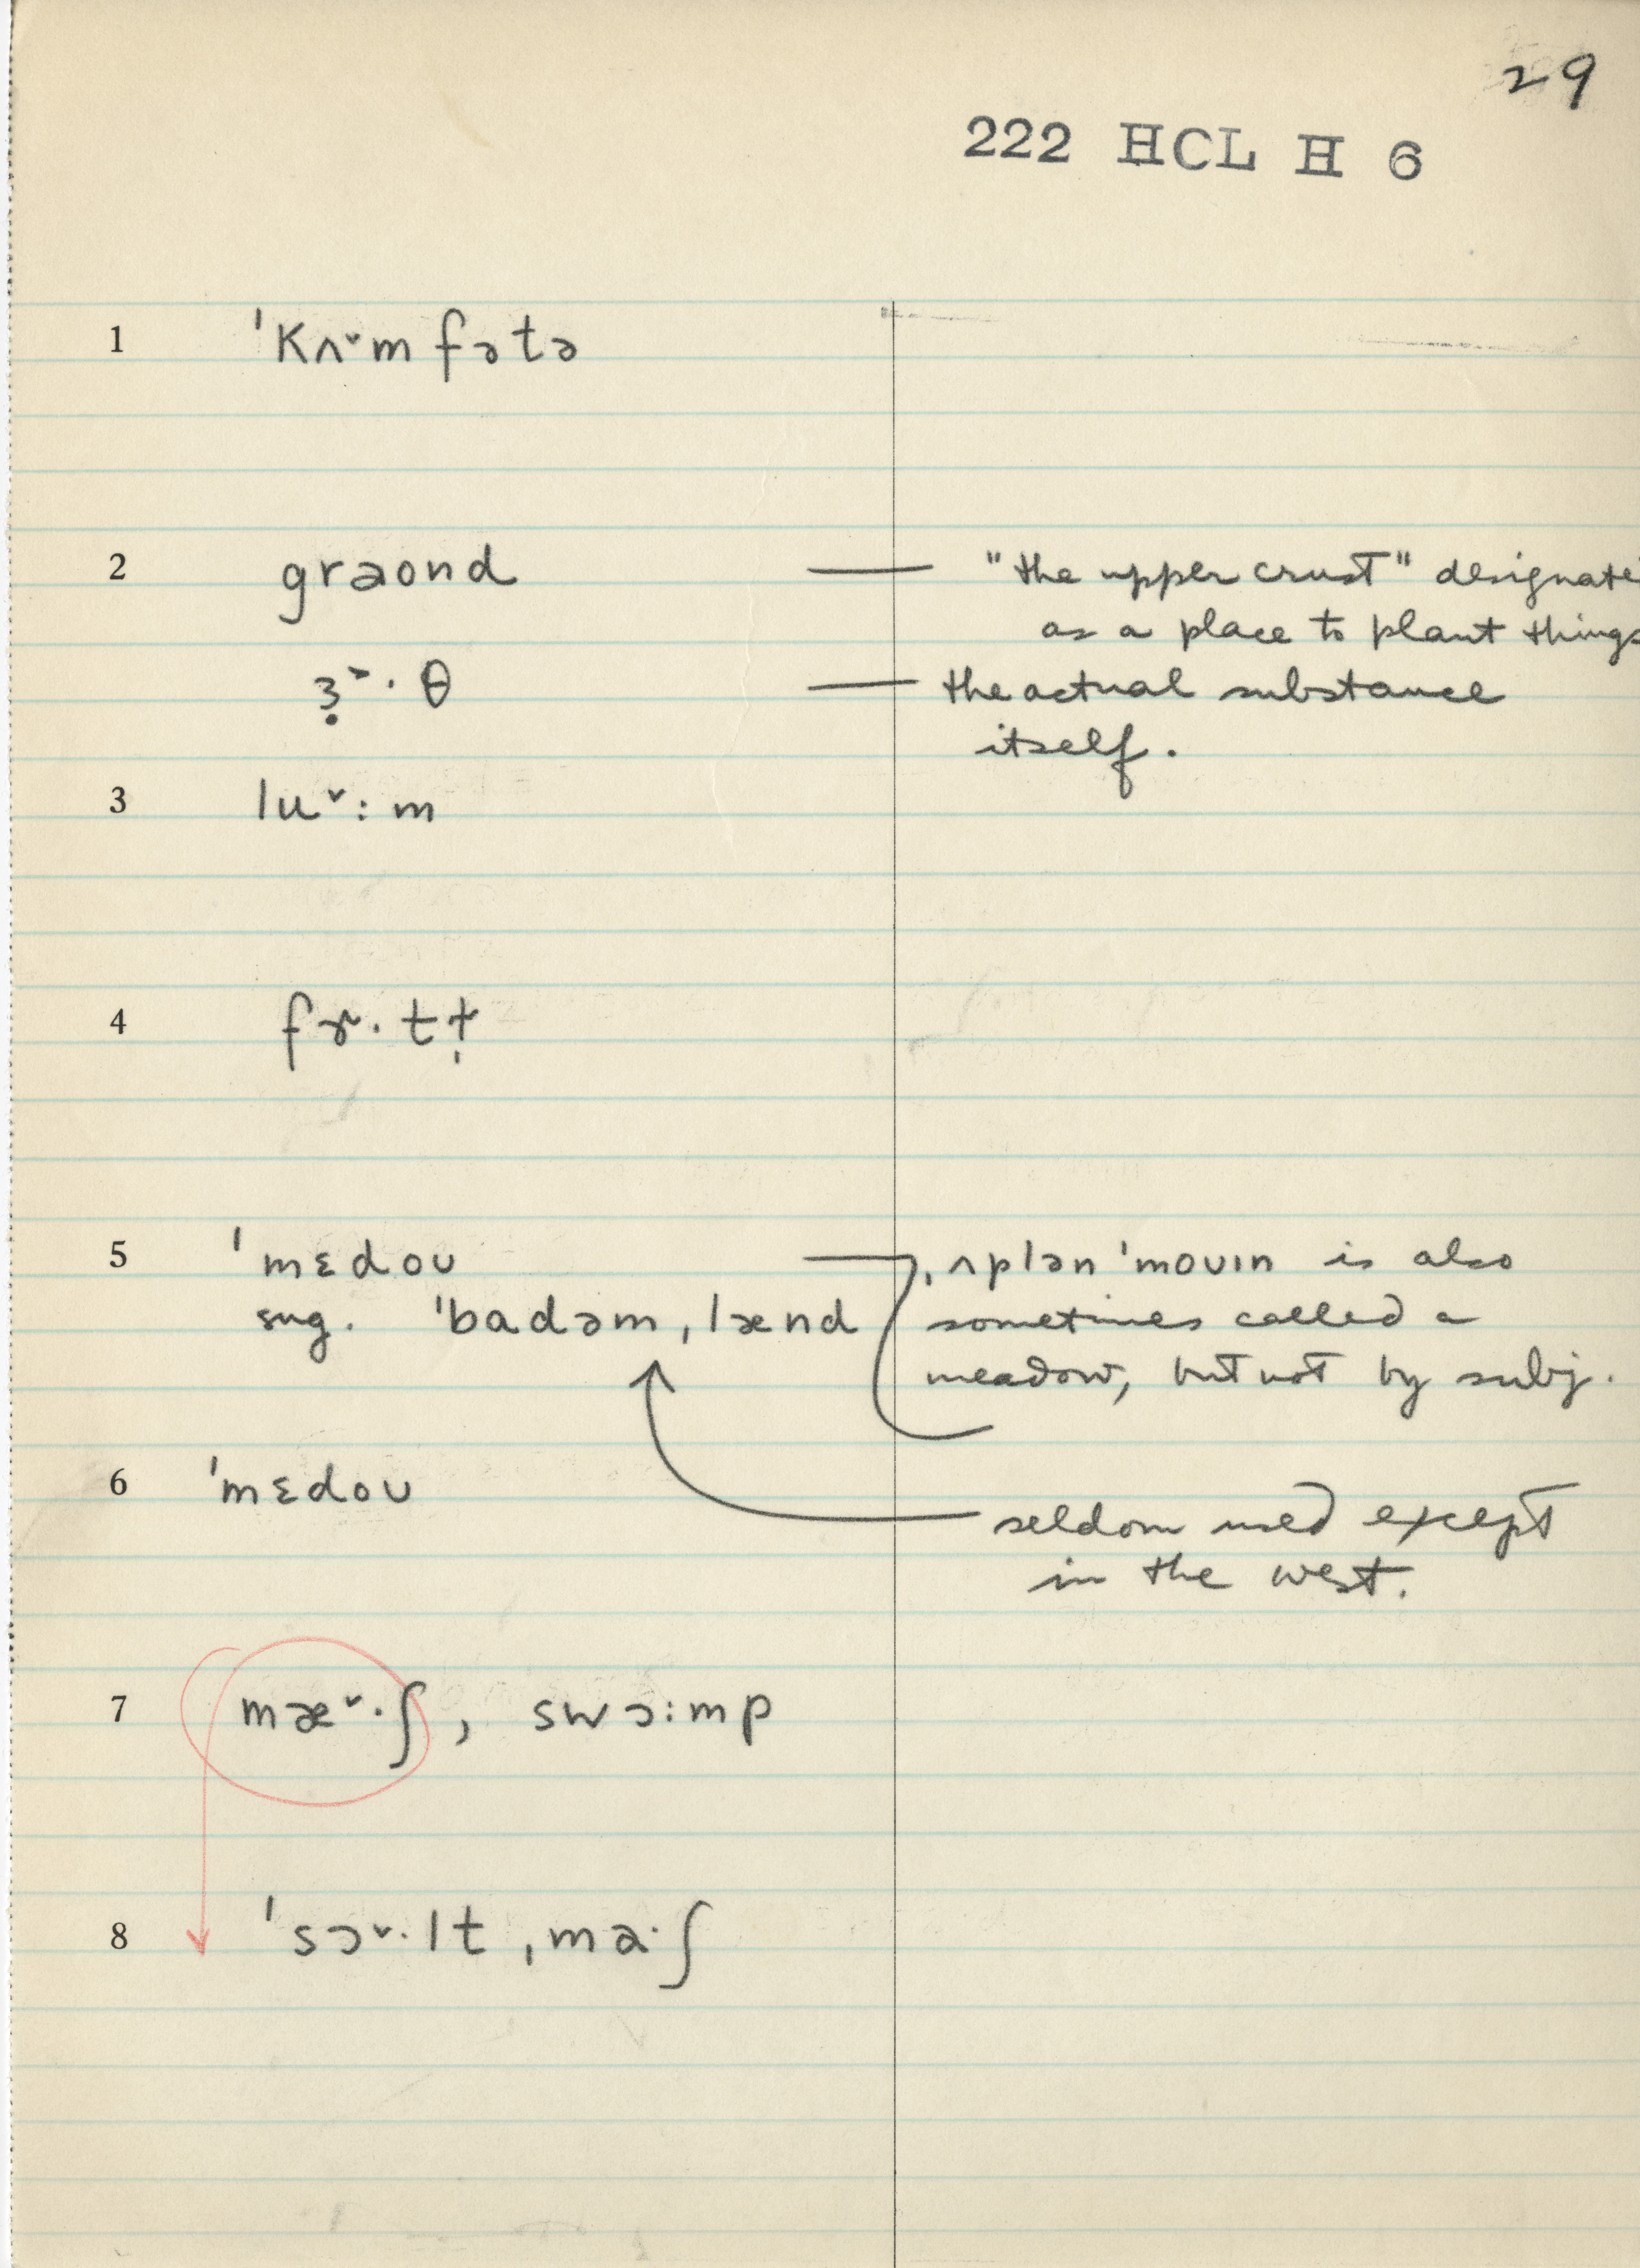 29
222 HCL H 6
1 ˈkʌ˅m fətə
2 graond — "the upper crust" designate
as a place to plant things
ɜ̣˃·θ — the actual substance
itself.
3 lu˅:m
4 fɤ·t
5 ˈmɛdoʊ — ˌʌplənˈmoʊɪn is also
sug. ˈbadəmˌlænd sometimes called a
meadow, but not by subj.
6 ˈmɛdoʊ
seldom used except
in the west.
7 mæ˅·ʃ, swɔ:mp
8 ˈsɔ˅·ltˌma·ʃ